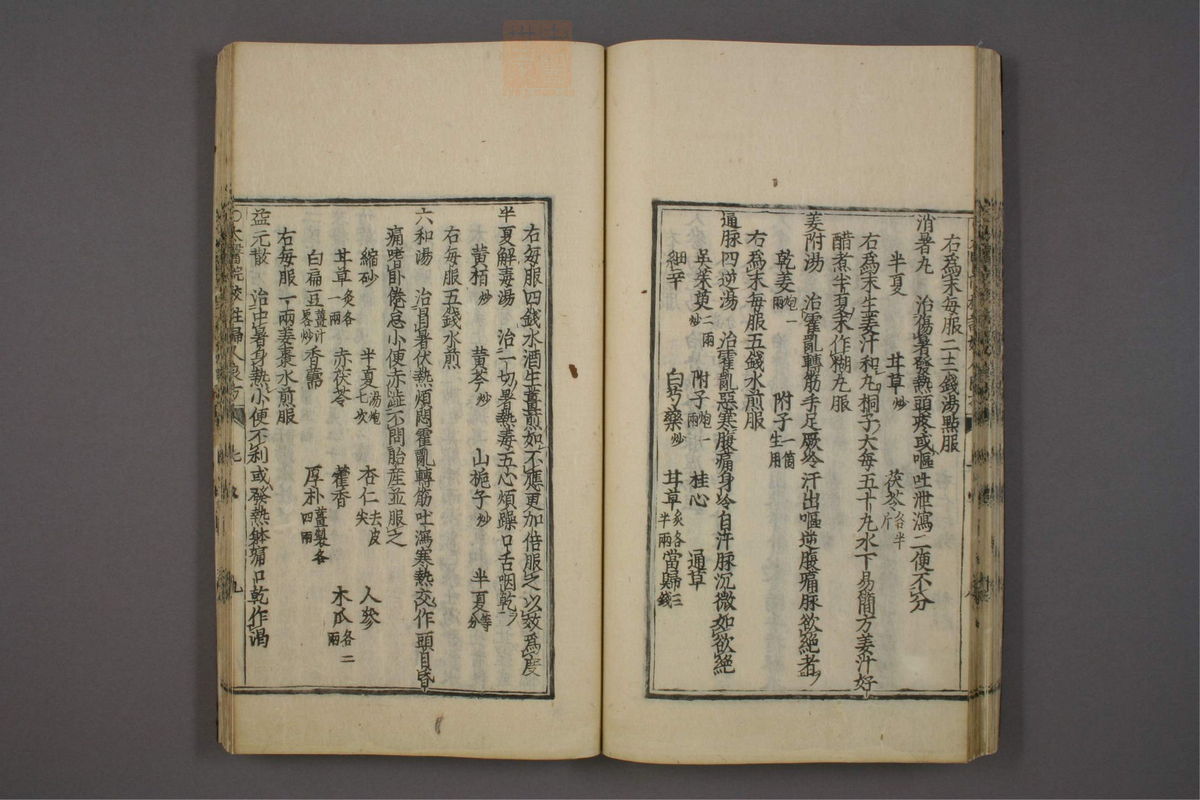 右爲末每服二三錢湯點服
消暑丸　治傷暑發熱頭疼或嘔吐泄瀉二便不分
半夏　甘草炒　茯苓各半斤
右爲末生姜汁和丸桐子大每五十丸水下易簡方姜汁好
醋煮半夏末作糊丸服
姜附湯　治霍亂轉筋手足厥冷汗出嘔逆腹痛脉欲絶者
乾姜炮一兩　附子一箇生用
右爲末每服五錢水煎服
通脉四逆湯　治霍亂惡寒腹痛身冷自汗脉沉微如欲絶
吳茱萸炒二兩　附子炮一兩　桂心　通草
細辛　白芍藥炒　甘草炙各半兩　當歸三錢
右每服四錢水酒生薑煎如不應更加倍服之以效爲度
半夏解毒湯　治一切暑熱毒五心煩躁口舌咽乾
黃栢炒　黃芩炒　山梔子炒　半夏等分
右每服五錢水煎
六和湯　治冒暑伏熱煩悶霍亂轉筋吐瀉寒熱交作頭目昏
痛嗜卧倦怠小便赤澁不問胎産並服之
縮砂　半夏湯炮七次　杏仁去皮尖　人參
甘草炙各一兩　赤茯苓　藿香　木瓜各二兩
白扁豆薑汁畧炒　香薷　厚朴薑製各四兩
右每服一兩姜棗水煎服
益元散　治中暑身熱小便不利或發熱躰痛口乾作渴
○太醫院校註婦人良方　七　九